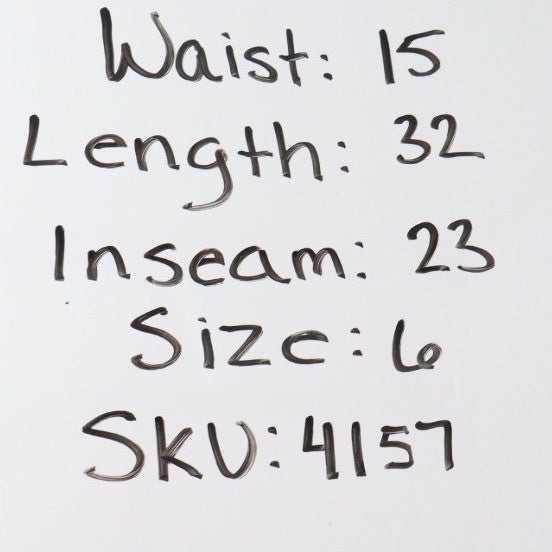 Waist: 15
Length: 32
Inseam: 23
Size: 6
SKU: 4157